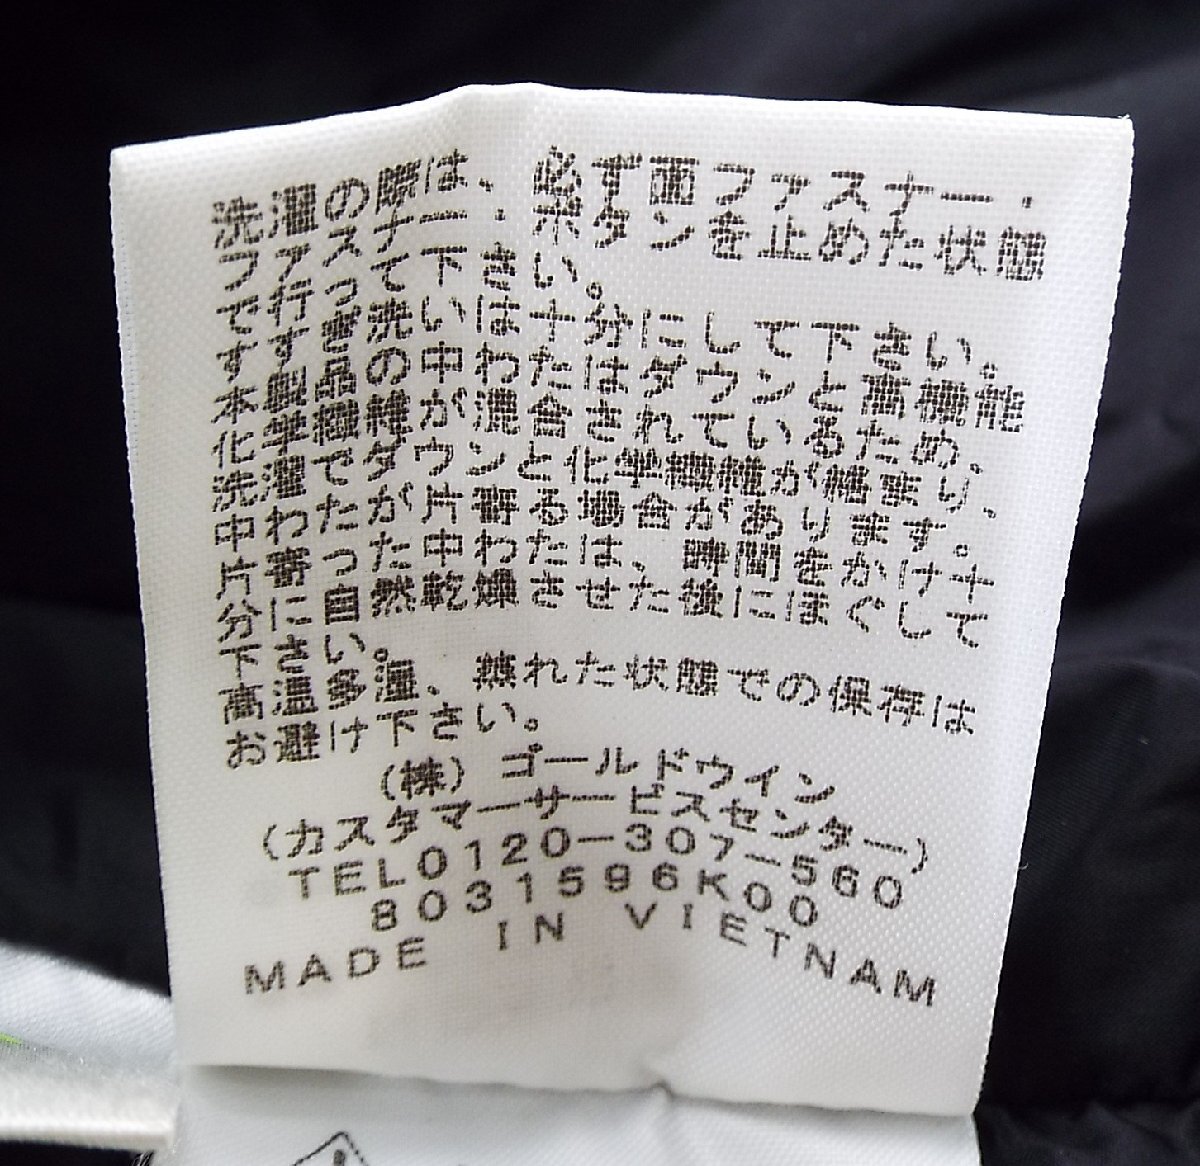 洗濯の際は、必ず面ファスナー・
ファスナー・ボタンを止めた状態
で行って下さい。
すすぎ洗いは十分にして下さい。
本製品の中わたはダウンと高機能
化学繊維が混合されているため、
洗濯でダウンと化学繊維が絡まり、
中わたが片寄る場合があります。
片寄った中わたは、時間をかけて十
分に自然乾燥させた後にほぐして
下さい。
高温多湿、蒸れた状態での保存は
お避け下さい。
(株) ゴールドウイン
(カスタマーサービスセンター)
TEL0120-307-560
8031596K00
MADE IN VIETNAM